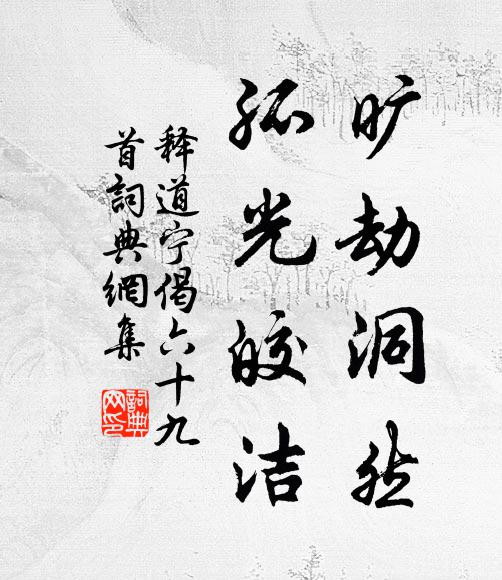 旷劫洞然
孤光皎洁
释道宁偈六十九
首詞典網集
詞典
网印